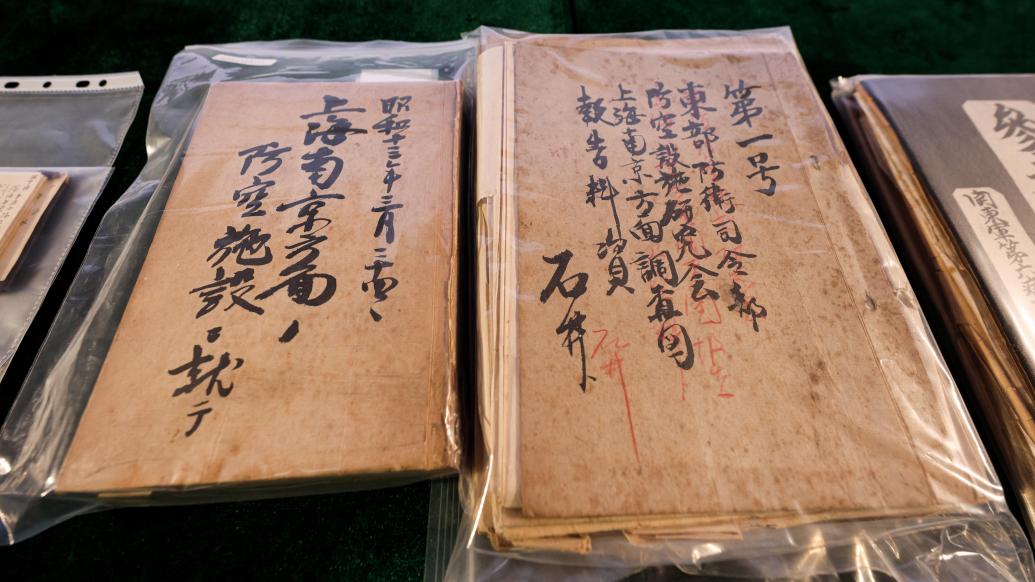 昭和十三年三月
上海南京方面ノ
防空施設ニ就テ
第一号
東部防衛司令部
防空設施研究会
上海南京方面調査団
報告料資
石井
石井
関東軍